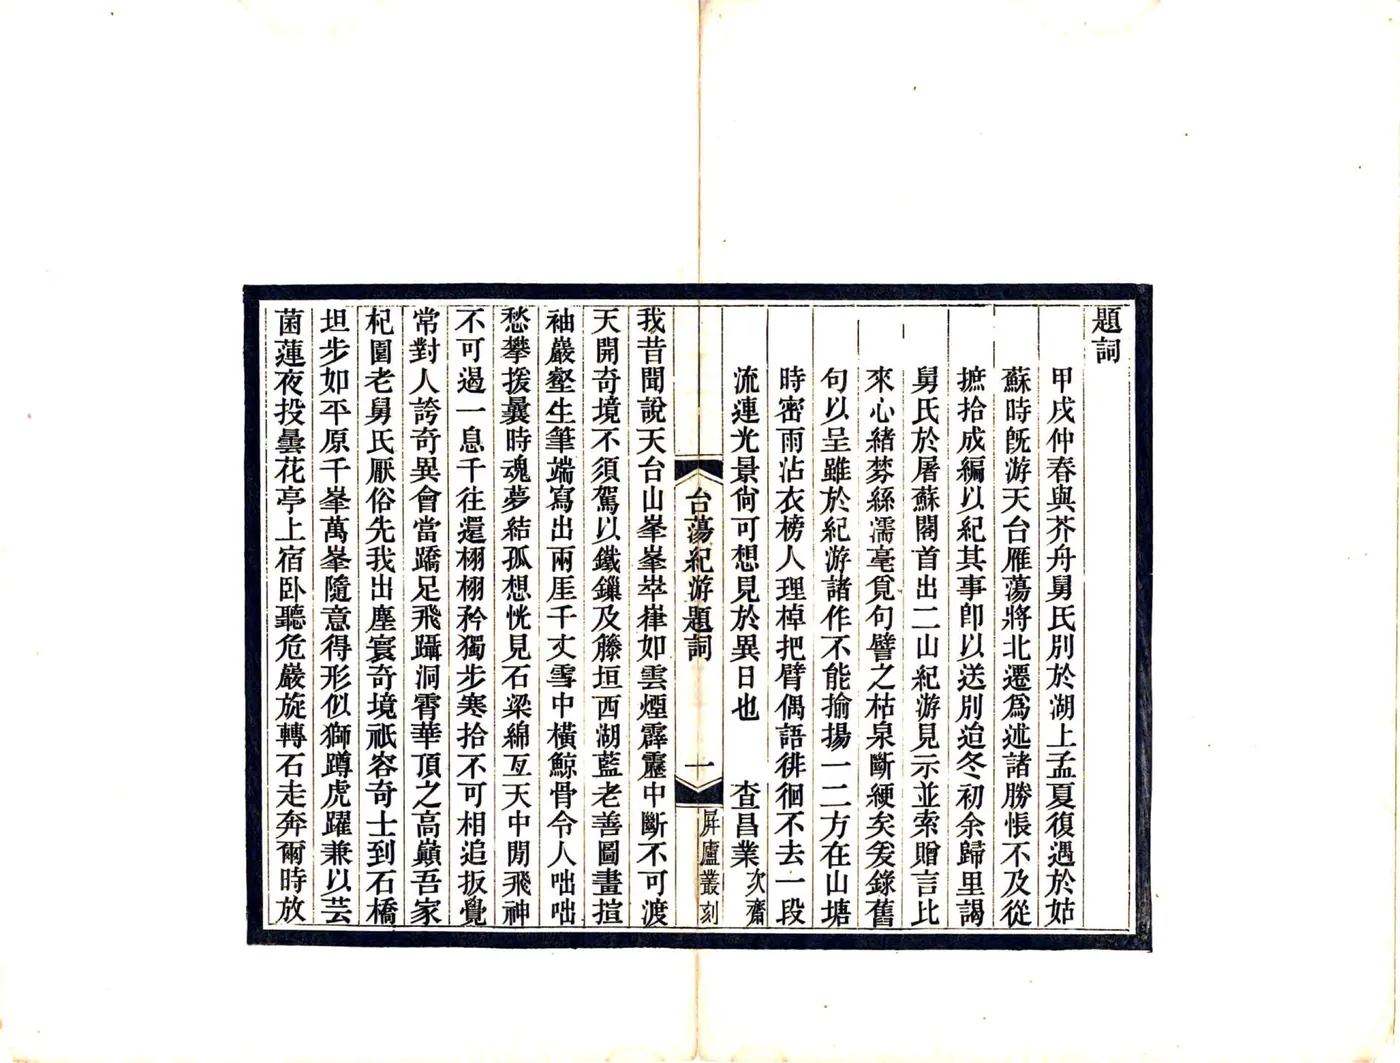 題詞
甲戌仲春與芥舟舅氏別於湖上孟夏復遇於姑
蘇時旣游天台雁蕩將北遷爲述諸勝悵不及從
摭拾成編以紀其事卽以送別迨冬初余歸里謁
舅氏於屠蘇閣首出二山紀游見示並索贈言比
來心緒棼絲濡毫覓句譬之枯泉斷綆矣爰錄舊
句以呈雖於紀游諸作不能揄揚一二方在山塘
時密雨沾衣榜人理棹把臂偶語徘徊不去一段
流連光景尙可想見於異日也 查昌業 次齋
台蕩紀游題詞 一 屛廬叢刻
我昔聞說天台山峯峯崒嵂如雲煙霹靂中斷不可渡
天開奇境不須駕以鐵鏁及籐垣西湖藍老善圖畫揎
袖巖壑生筆端寫出兩厓千丈雪中橫鯨骨令人咄咄
愁攀援曩時魂夢結孤想恍見石梁綿亙天中閒飛神
不可遏一息千往還栩栩矜獨步寒拾不可相追扳覺
常對人誇奇異會當蹻足飛躡洞霄華頂之高巔吾家
杞園老舅氏厭俗先我出塵寰奇境祇容奇士到石橋
坦步如平原千峯萬峯隨意得形似獅蹲虎躍兼以芸
菌蓮夜投曇花亭上宿卧聽危巖旋轉石走奔爾時放